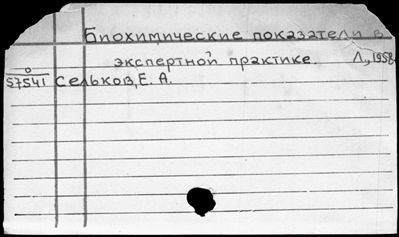 Биохимические показатели в
экспертной практике. Л., 1958.
0
57541 Сельков, Е. А.